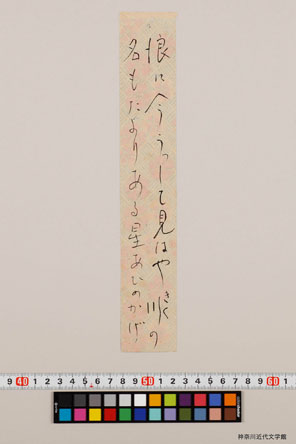 浪に今うつして見はや 川の
名もたよりある星あひのかげ
9 40 1 2 3 4 5 6 7 8 9 50 1 2 3 4 5 6 7 8 9 60 1
神奈川近代文学館